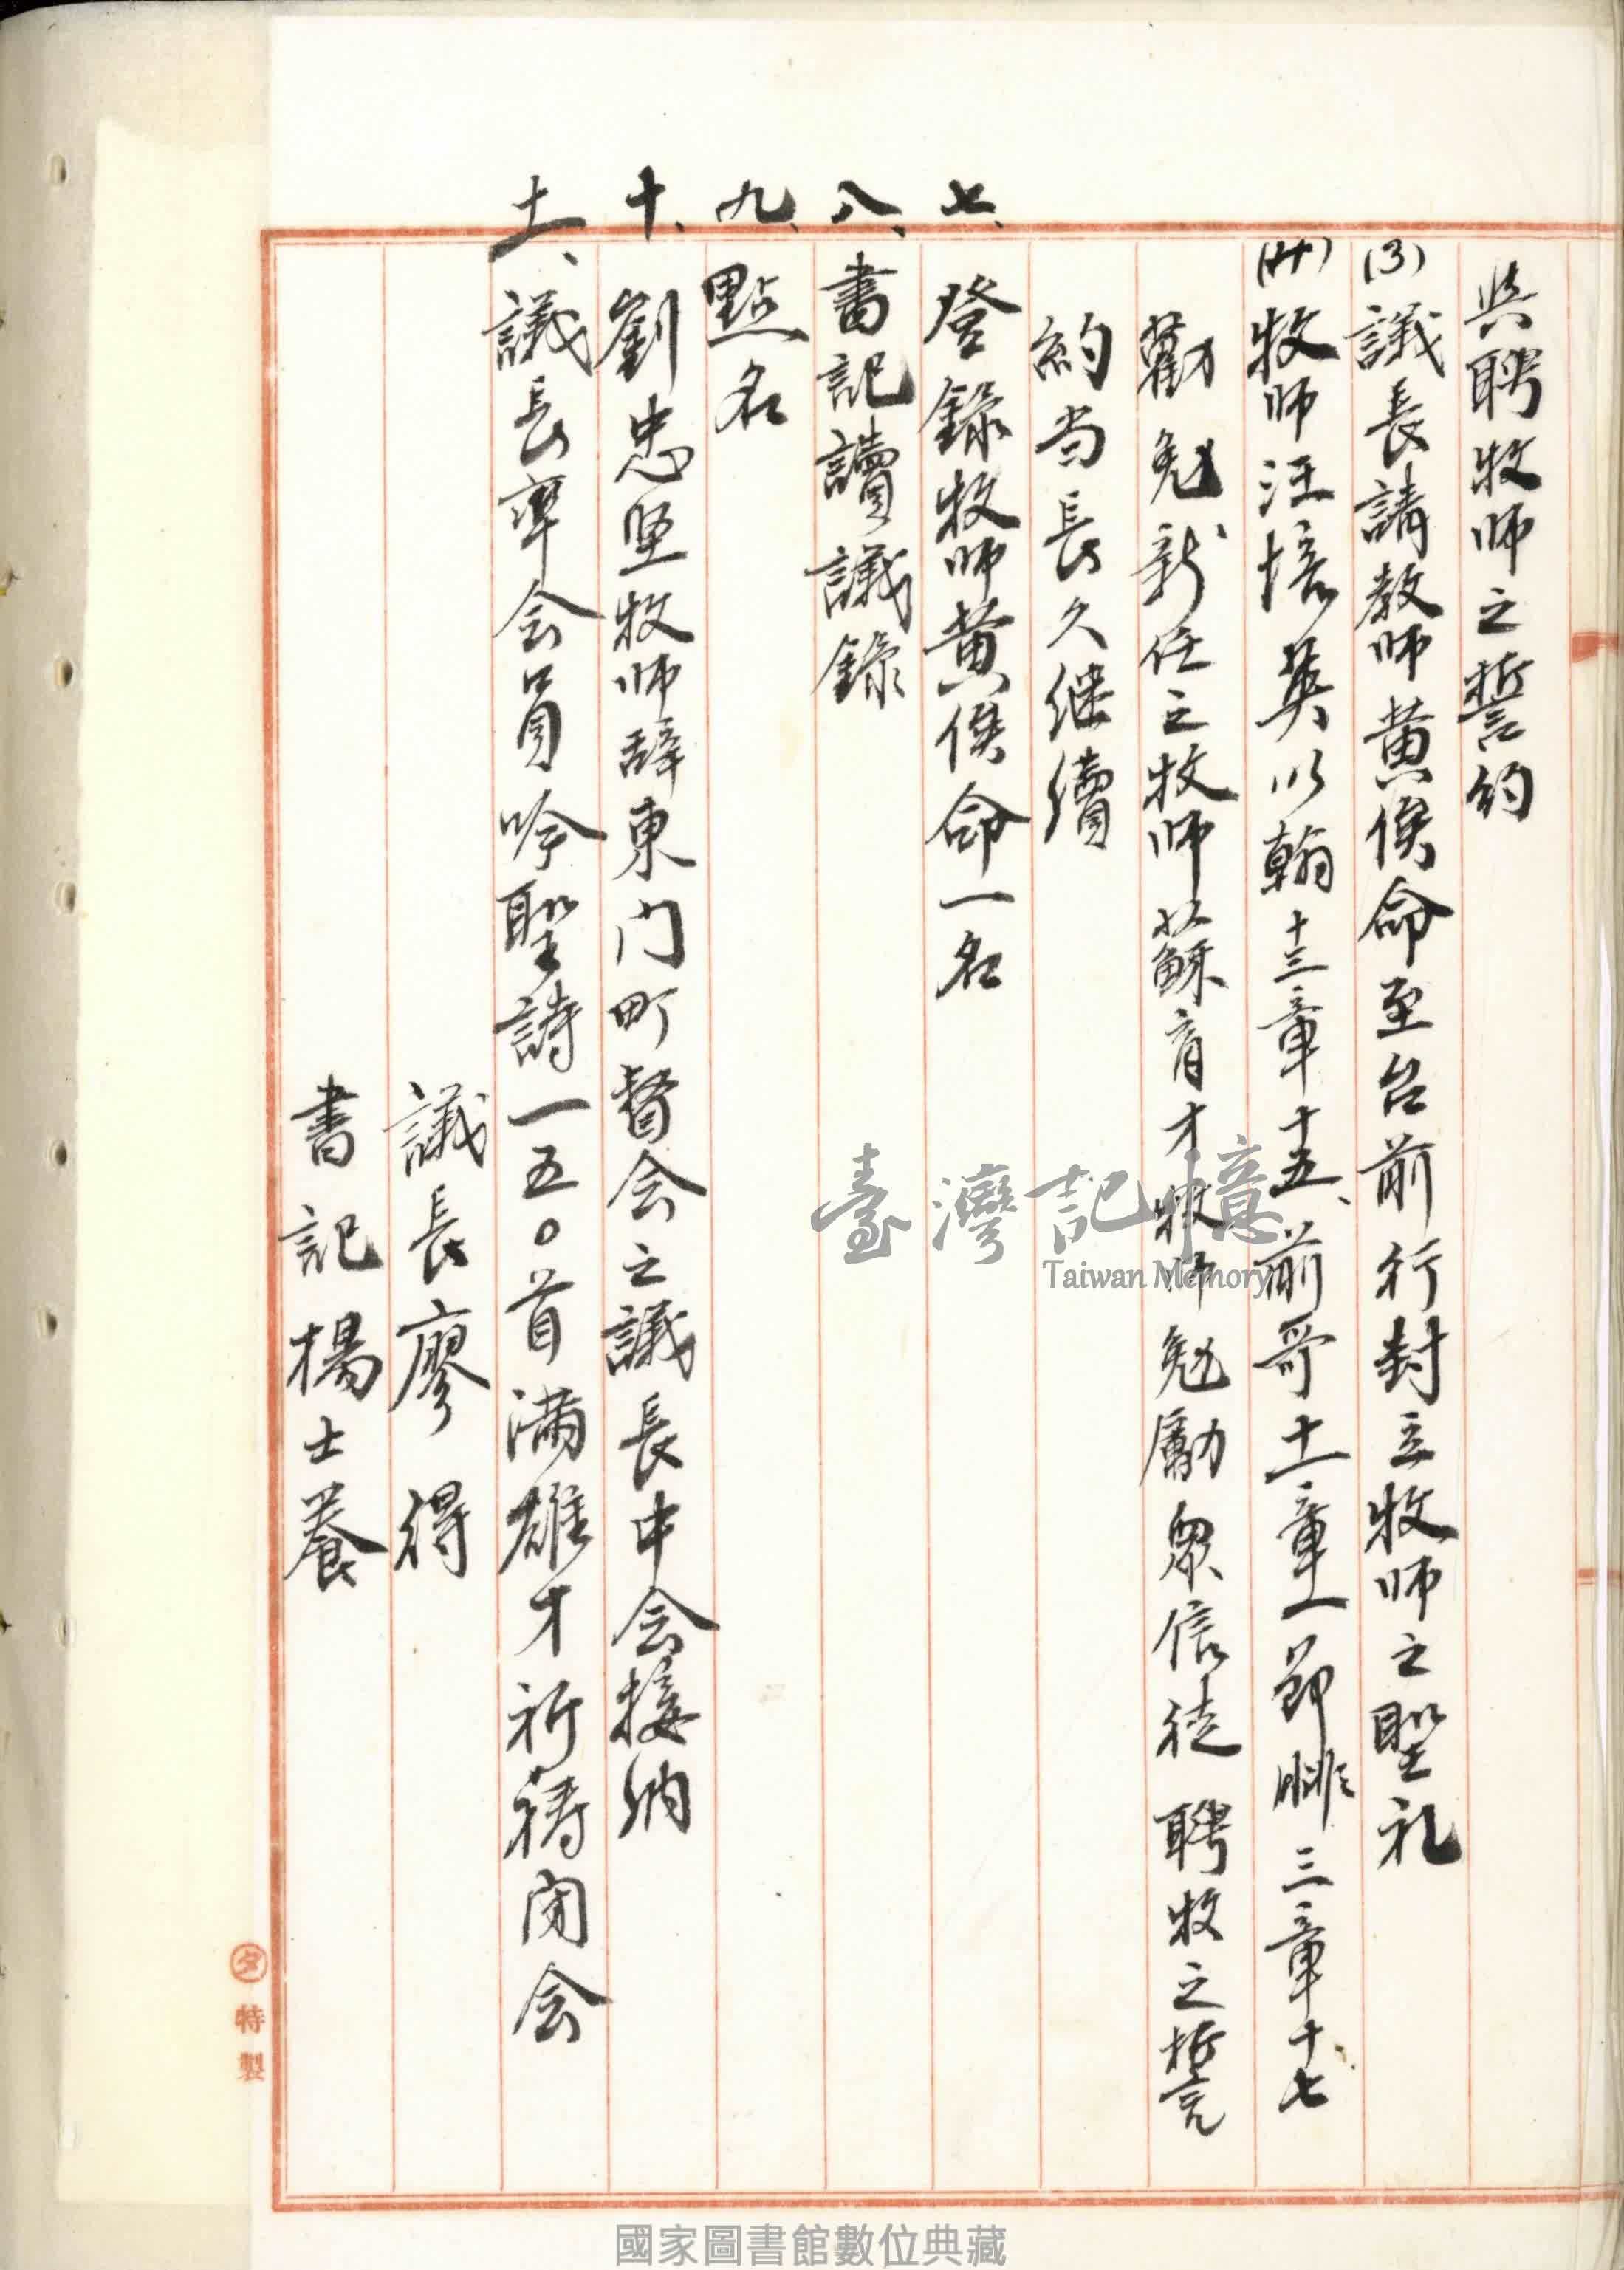 與聘牧師之誓約
(3)議長請教師黄俟命至台前行封立牧師之聖礼
(4)牧師汪培英以翰十三章十五、前哥十一章一節腓三章十七
勸勉新任之牧師蘇育才牧師勉勵眾信徒聘牧之誓
約当長久继續
七、登錄牧師黄俟命一名
八、書記讀議錄
九、點名
十、劉忠坚牧師辞東门町督会之議長中会接納
十一、議長率会員吟聖詩一五〇首满雄才祈禱闭会
議長廖得
書記楊士養
特製
臺灣記憶
Taiwan Memory
國家圖書館數位典藏